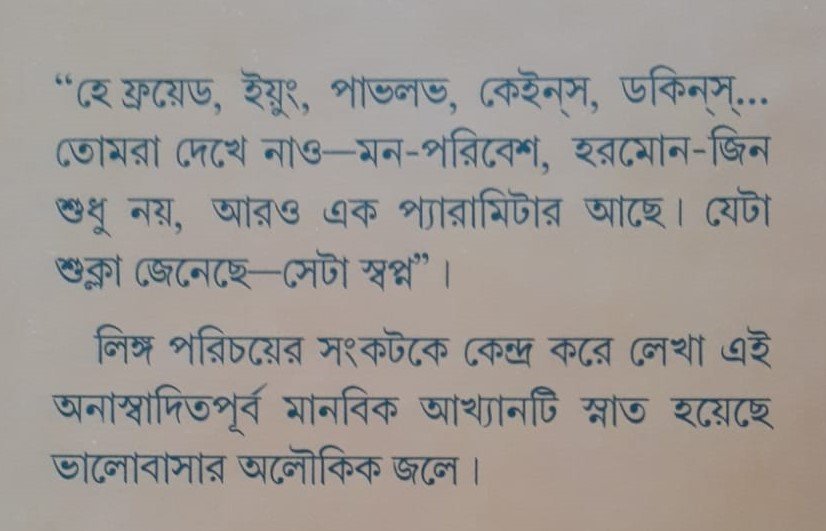 “হে ফ্রয়েড, ইয়ুং, পাভলভ, কেইন্‌স, ডকিন্‌স্...
তোমরা দেখে নাও—মন-পরিবেশ, হরমোন-জিন
শুধু নয়, আরও এক প্যারামিটার আছে। যেটা
শুক্লা জেনেছে—সেটা স্বপ্ন”।
লিঙ্গ পরিচয়ের সংকটকে কেন্দ্র করে লেখা এই
অনাস্বাদিতপূর্ব মানবিক আখ্যানটি স্নাত হয়েছে
ভালোবাসার অলৌকিক জলে।